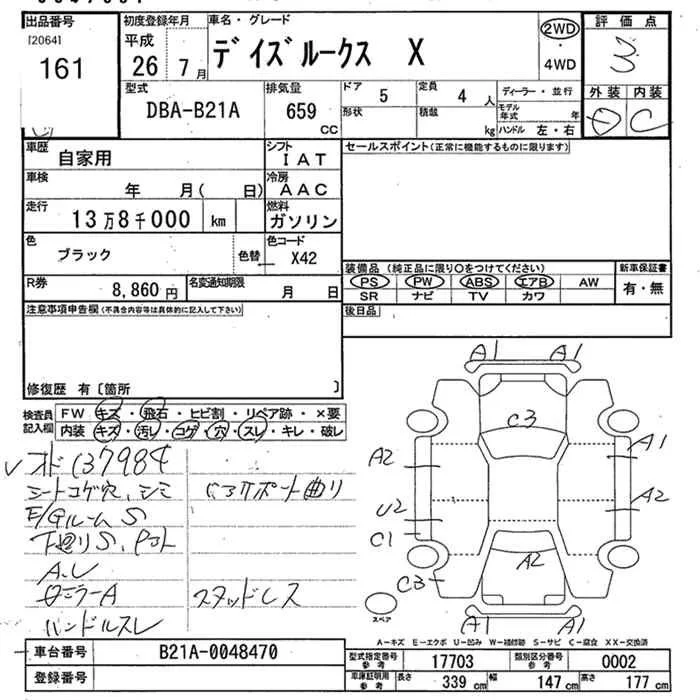 出品番号
[2064]
161
初度登録年月
平成
26年 7月
車名・グレード
デイズルークス X
2WD
・
4WD
評価点
3
外装 内装
D C
型式
DBA-B21A
排気量
659
CC
ドア 5
定員 4 人
形状
積載 kg
ディーラー・並行
モデル年式 年
ハンドル 左・右
車歴
自家用
シフト
IAT
車検
年 月( 日)
冷房
AAC
走行
13万8千000 km
燃料
ガソリン
色
ブラック
色替
色コード
X42
R券
8,860 円
名変通知期限
月 日
セールスポイント(正常に機能するものに限ります)
装備品 (純正品に限り〇をつけてください)
新車保証書
PS PW ABS エアB AW
SR ナビ TV カワ
有・無
後日品
注意事項申告欄(不具合内容等は具体的に記入して下さい)
修復歴 有〔箇所 〕
検査員
記入欄
FW キズ・飛石・ヒビ割・リペア跡・×要
内装 キズ・汚レ・コゲ・穴・スレ・キレ・破レ
オド137984
シートコゲ穴、シミ
E/Gルーム S
下廻りS、
ハンドルスレ
コアサポート曲り
スタッドレス
A1 A1
C3
A2
A1
U2
A2
C1
C3
A2
スペア
A1 A1
A-キズ E-エクボ U-凹み W-補修跡 S-サビ C-腐食 XX-交換済
車台番号
B21A-0048470
登録番号
型式指定番号
参考
17703
類別区分番号
参考
0002
車庫証明用
参考
長さ 339 cm
幅 147 cm
高さ 177 cm